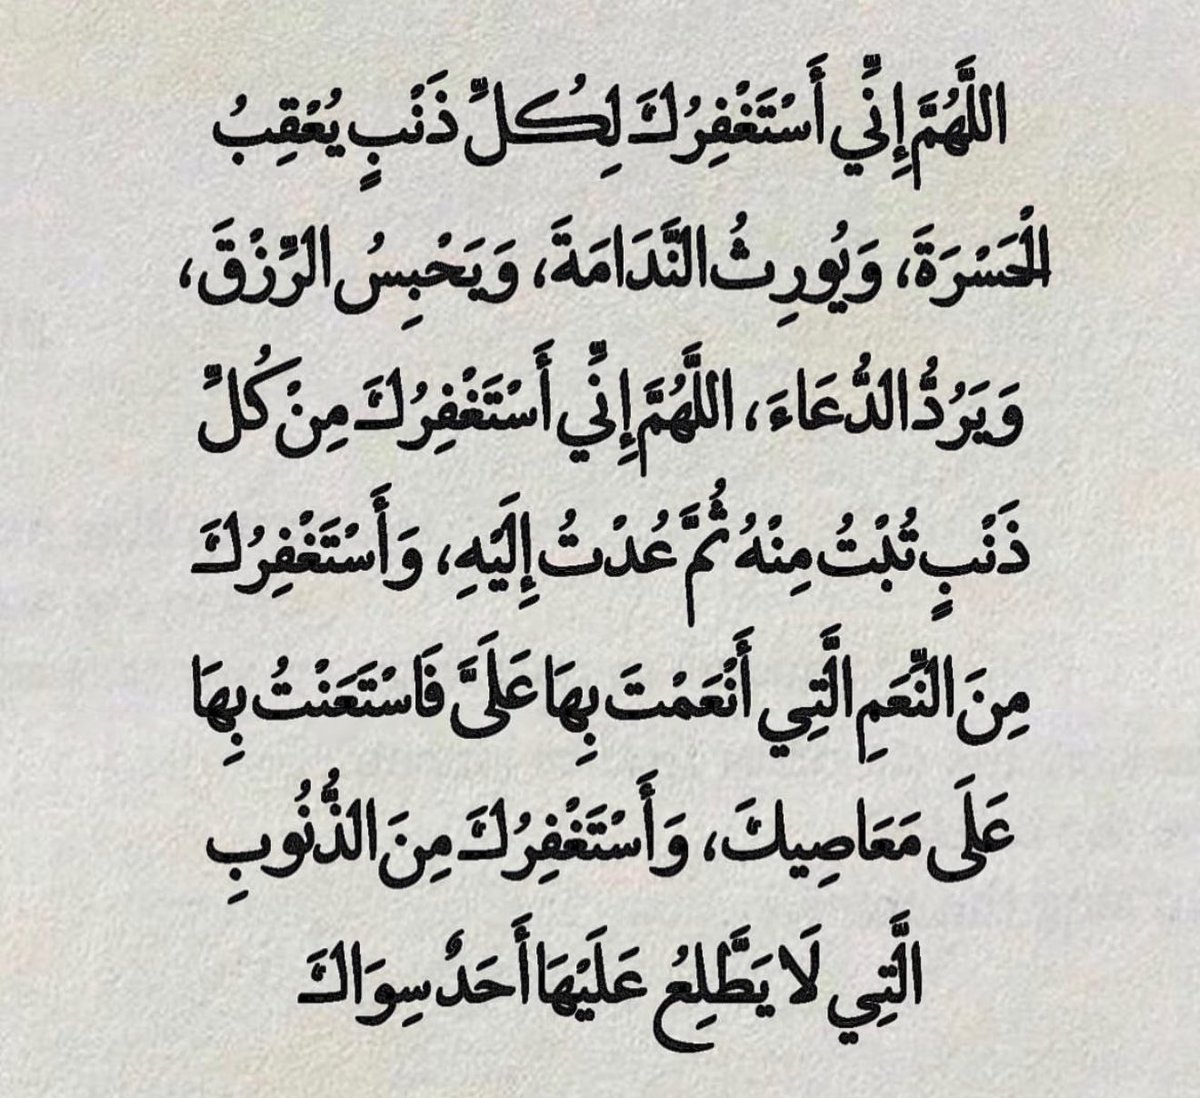 اللَّهُمَّ إِنِّي أَسْتَغْفِرُكَ لِكُلِّ ذَنْبٍ يُعْقِبُ
الْحَسْرَةَ، وَيُورِثُ النَّدَامَةَ، وَيَحْبِسُ الرِّزْقَ،
وَيَرُدُّ الدُّعَاءَ، اللَّهُمَّ إِنِّي أَسْتَغْفِرُكَ مِنْ كُلِّ
ذَنْبٍ تُبْتُ مِنْهُ ثُمَّ عُدْتُ إِلَيْهِ، وَأَسْتَغْفِرُكَ
مِنَ النِّعَمِ الَّتِي أَنْعَمْتَ بِهَا عَلَيَّ فَاسْتَعَنْتُ بِهَا
عَلَى مَعَاصِيكَ، وَأَسْتَغْفِرُكَ مِنَ الذُّنُوبِ
الَّتِي لَا يَطَّلِعُ عَلَيْهَا أَحَدٌ سِوَاكَ